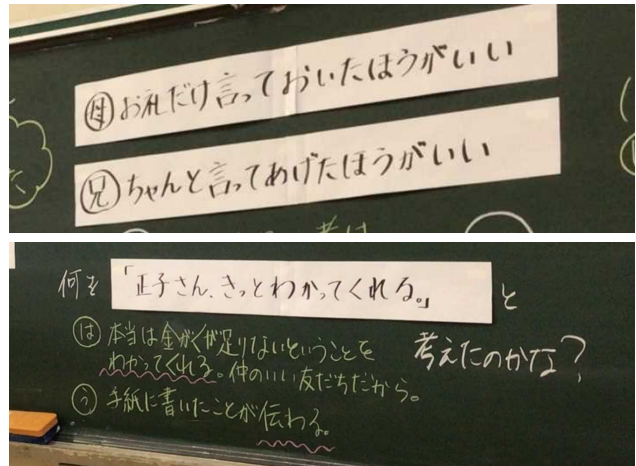 ㊊お礼だけ言っておいたほうがいい
㊑ちゃんと言ってあげたほうがいい
何を「正子さん、きっとわかってくれる。」と
考えたのかな？
は 本当は金がくが足りないということを
わかってくれる。仲のいい友だちだから。
う 手紙に書いたことが伝わる。